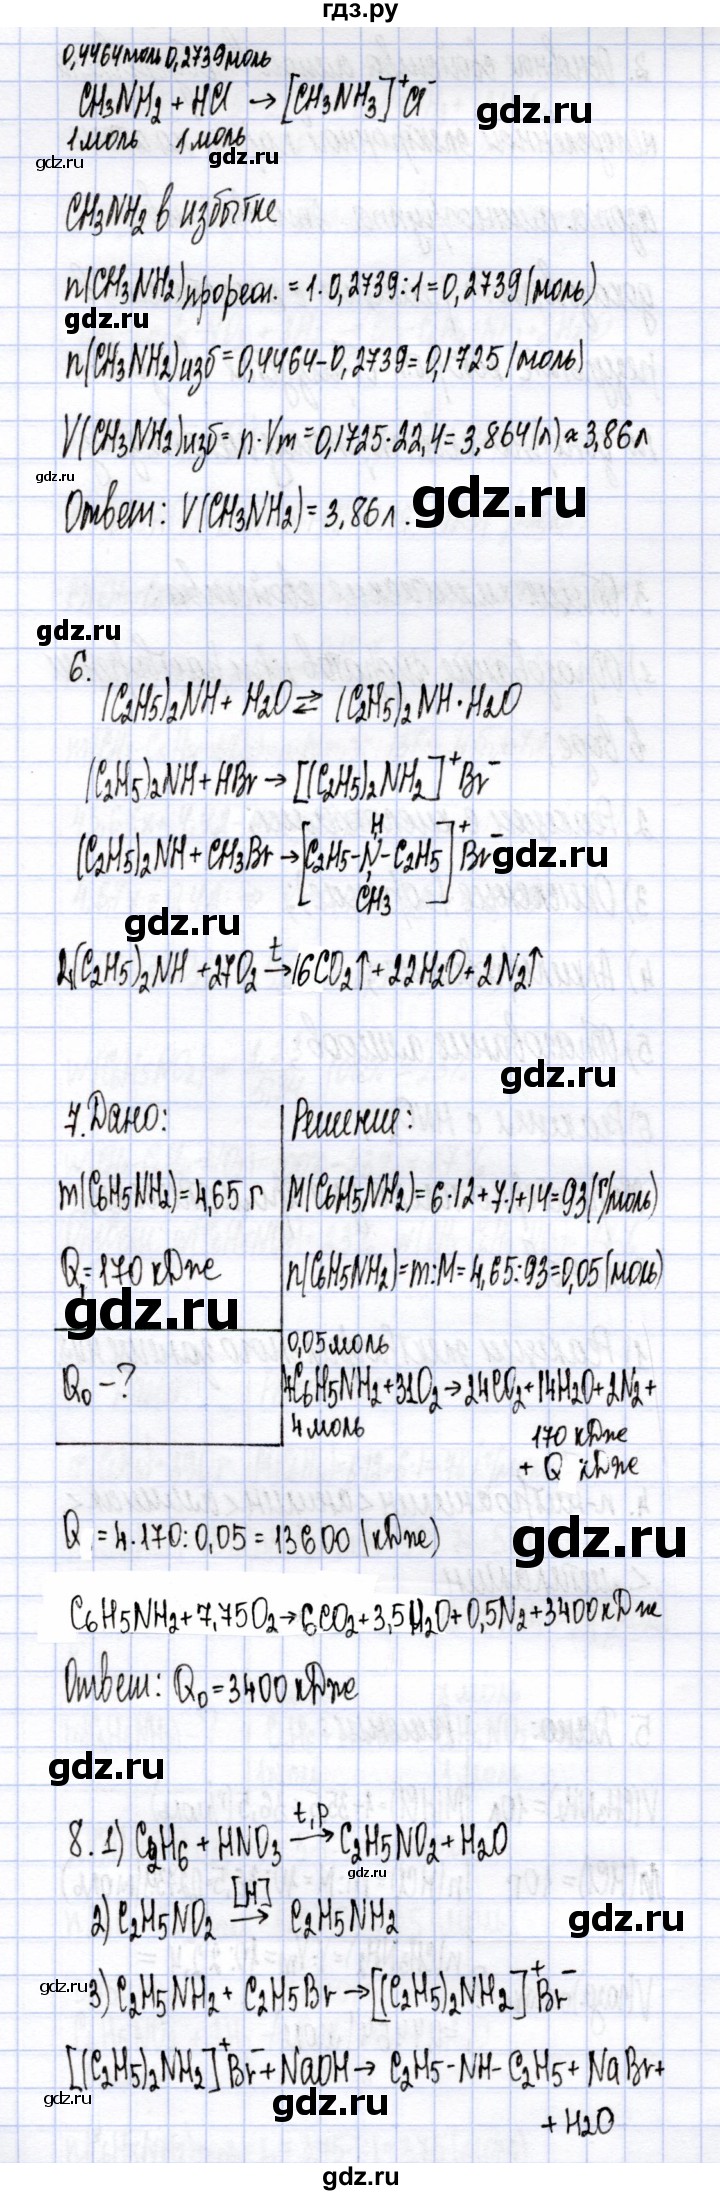 гдз.ру
0,4464моль 0,2739моль
CH₃NH₂ + HCl → [CH₃NH₃]⁺Cl⁻
gdz.ru
1 моль 1 моль
gdz.ru
gdz.ru
CH₃NH₂ в избытке
n(CH₃NH₂)прореаг. = 1·0,2739:1=0,2739(моль)
gdz.ru
n(CH₃NH₂)изб=0,4464-0,2739=0,1725(моль)
V(CH₃NH₂)изб= n·Vm=0,1725·22,4=3,864(л)≈3,86л
gdz.ru
Ответ: V(CH₃NH₂)=3,86л.
gdz.ru
gdz.ru
6.
(C₂H₅)₂NH + H₂O ⇄ (C₂H₅)₂NH·H₂O
(C₂H₅)₂NH+HBr→[(C₂H₅)₂NH₂]⁺Br⁻
H
(C₂H₅)₂NH+CH₃Br→[C₂H₅-N-C₂H₅]⁺Br⁻
gdz.ru
CH₃
gdz.ru
t
4(C₂H₅)₂NH +27O₂ → 16CO₂↑+22H₂O+2N₂↑
gdz.ru
7. Дано: Решение:
m(C₆H₅NH₂)=4,65 г M(C₆H₅NH₂)=6·12+7·1+14=93(г/моль)
Q₁=170 кДж n(C₆H₅NH₂)=m:M=4,65:93=0,05(моль)
gdz.ru
0,05моль
Q₀ - ? 4C₆H₅NH₂+31O₂→24CO₂+14H₂O+2N₂+
4 моль 170 кДж
+ Q кДж
Q = 4·170:0,05=13600(кДж)
gdz.ru
C₆H₅NH₂+7,75O₂→6CO₂+3,5H₂O+0,5N₂+3400кДж
Ответ: Q₀=3400 кДж
gdz.ru
t,p
8. 1) C₂H₆ + HNO₃ → C₂H₅NO₂+H₂O
gdz.ru
[H]
2) C₂H₅NO₂ → C₂H₅NH₂
gdz.ru
gdz.ru
3) C₂H₅NH₂ + C₂H₅Br→[(C₂H₅)₂NH₂]⁺Br⁻
[(C₂H₅)₂NH₂]⁺Br⁻+NaOH→ C₂H₅-NH-C₂H₅+NaBr+
gdz.ru
gdz.ru
+H₂O
gdz.ru